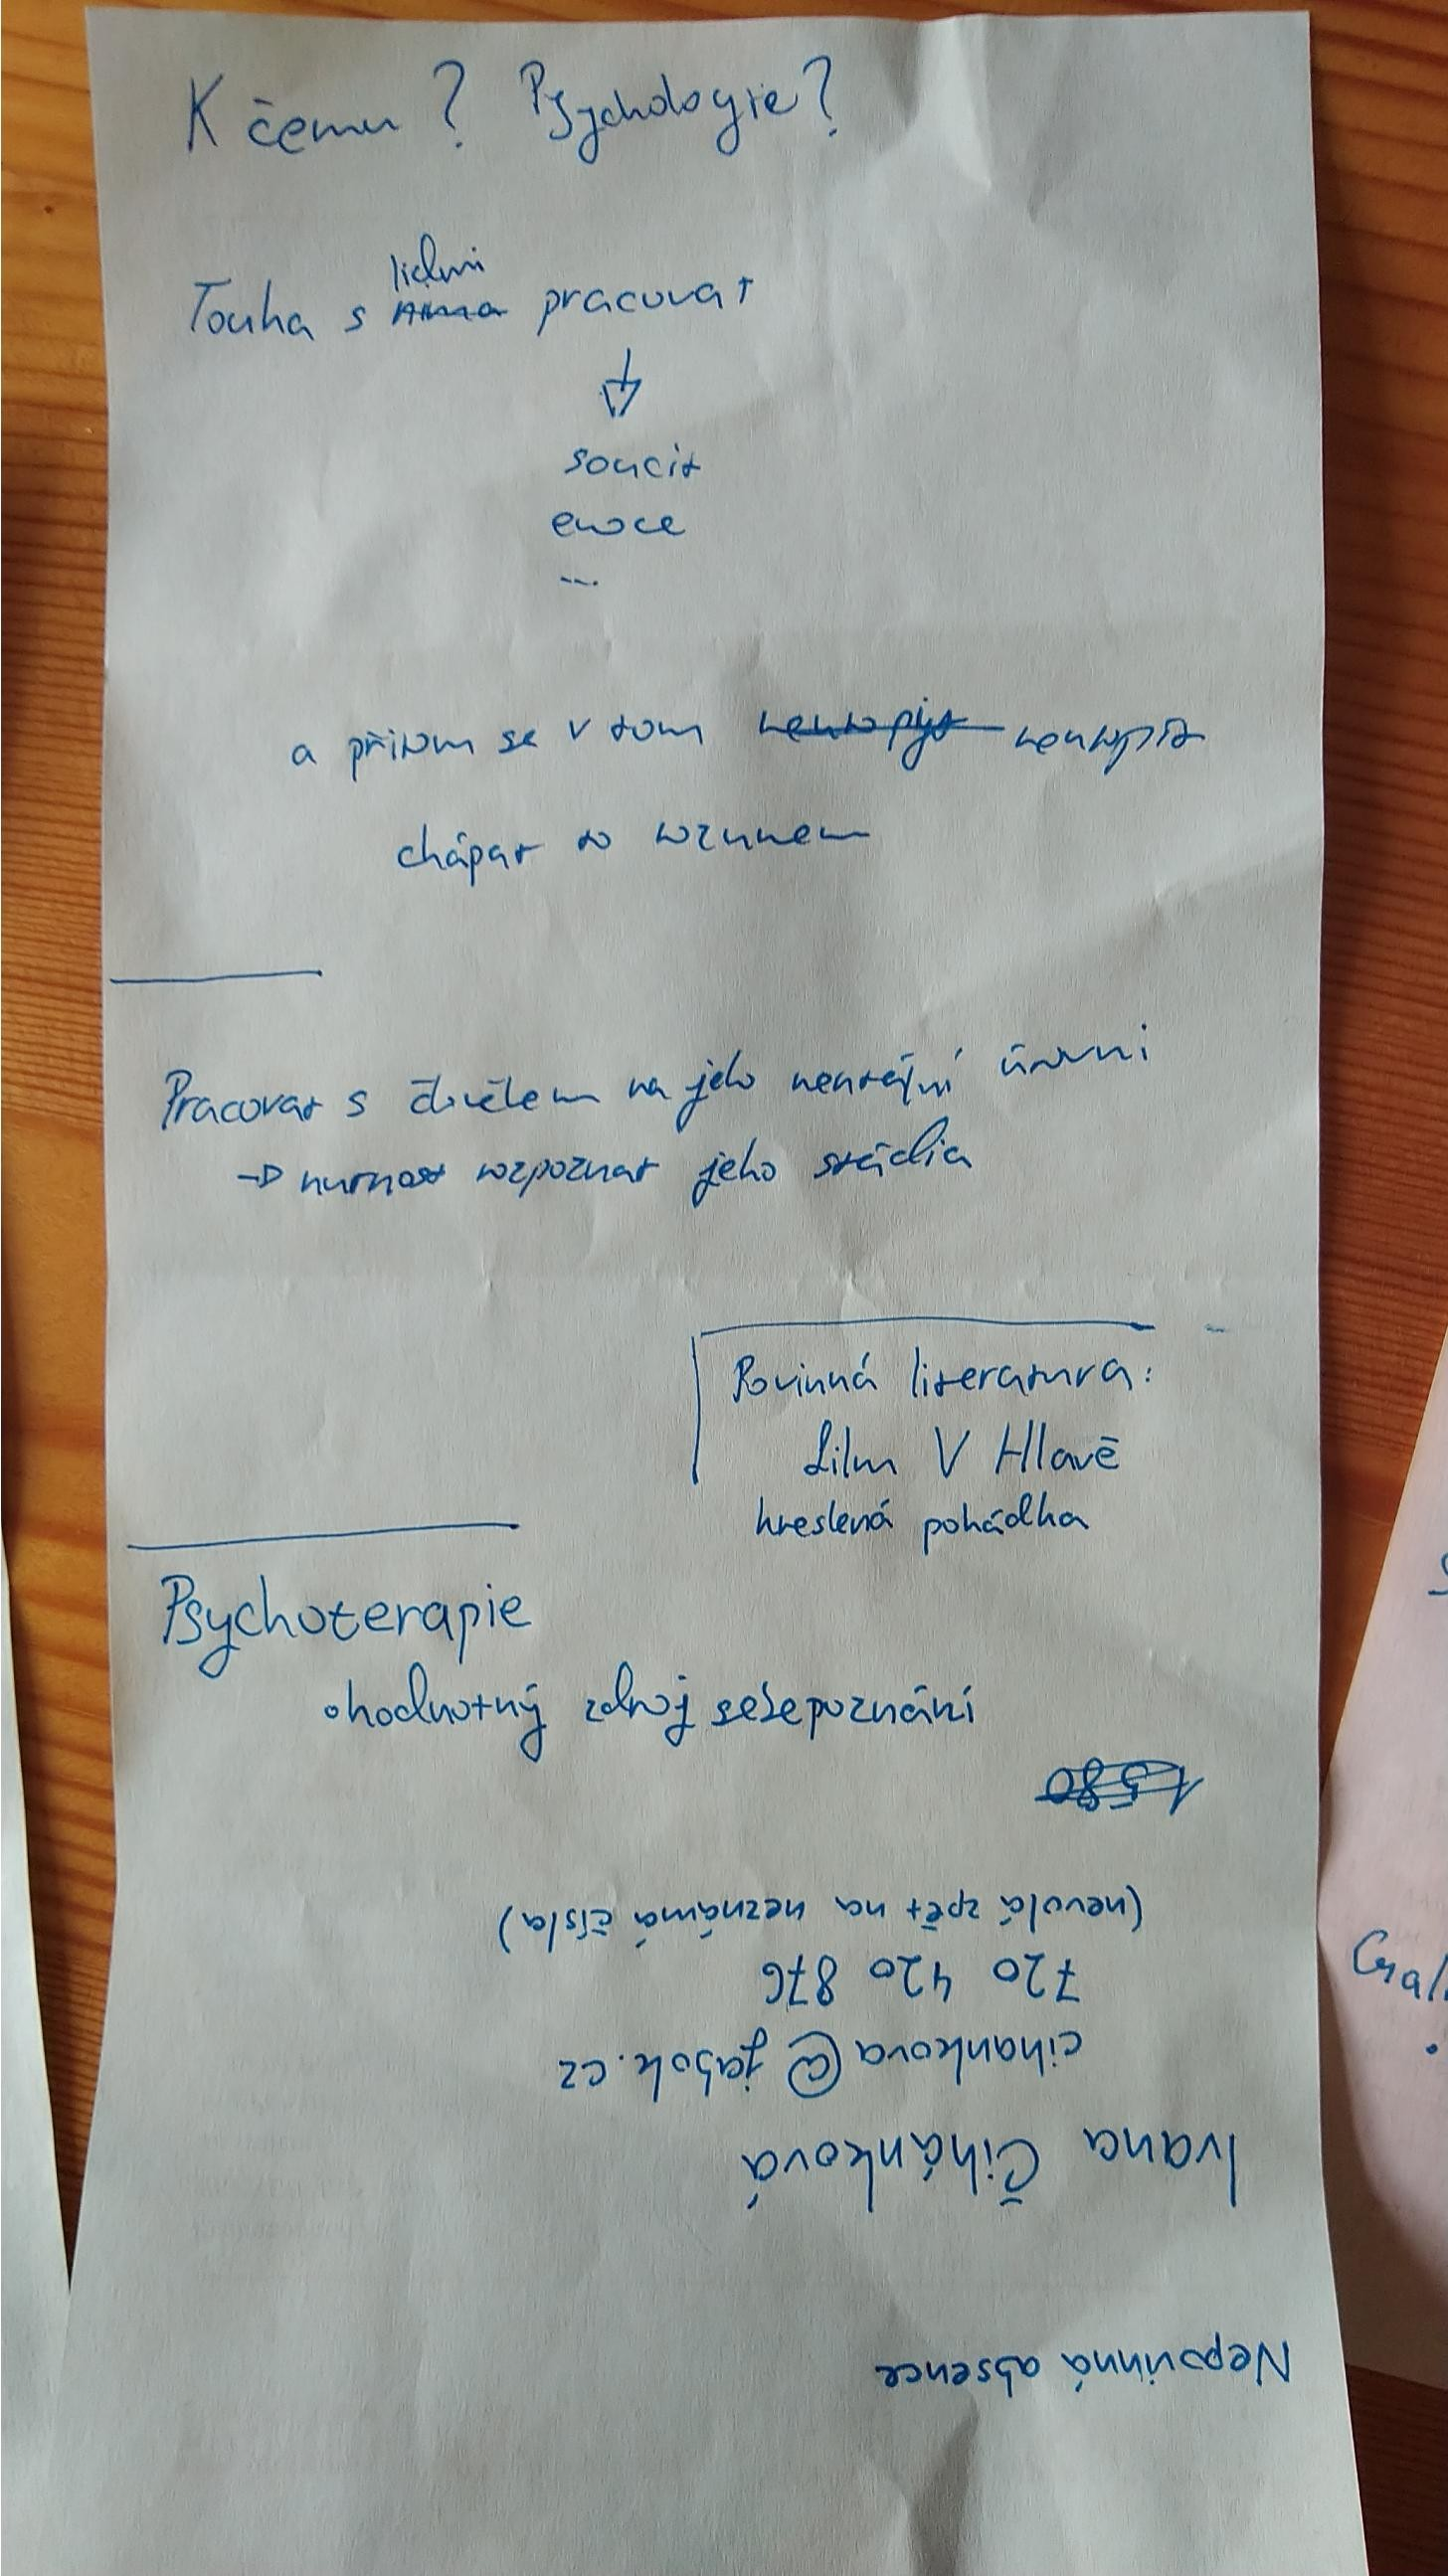 K čemu? Psychologie?
lidmi
Touha s pracovat
soucit
emoce
...
a přitom se v tom neutopit neutopit
chápat to rozumem
Pracovat s člověkem na jeho úrovni
→ nutnost rozpoznat jeho stádia
Povinná literatura:
film V Hlavě
kreslená pohádka
Psychoterapie
• hodnotný zdroj sebepoznání
1580
Nepovinná absence
Ivana Čihánková
cihankova@jabok.cz
720 420 876
(nevolá zpět na neznámá čísla)
Cyal